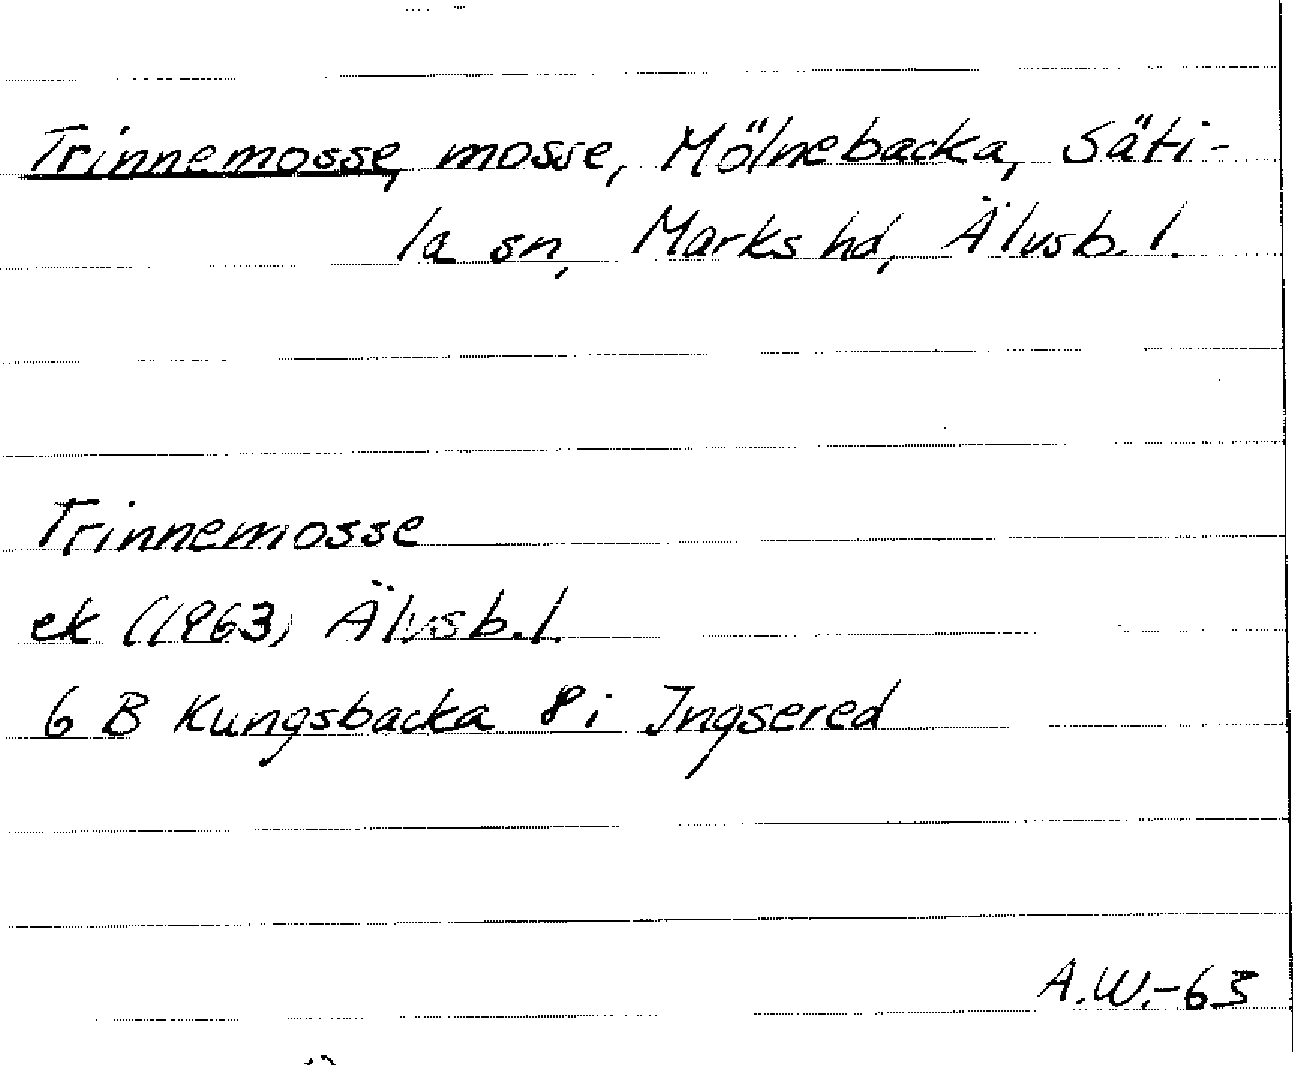 Trinnemosse, mosse, Mölnebacka, Säti-
la sn, Marks hd, Älvsb. l.
Trinnemosse
ek (1963) Älvsb. l.
6 B Kungsbacka 8 i Ingsered
A.W.-63